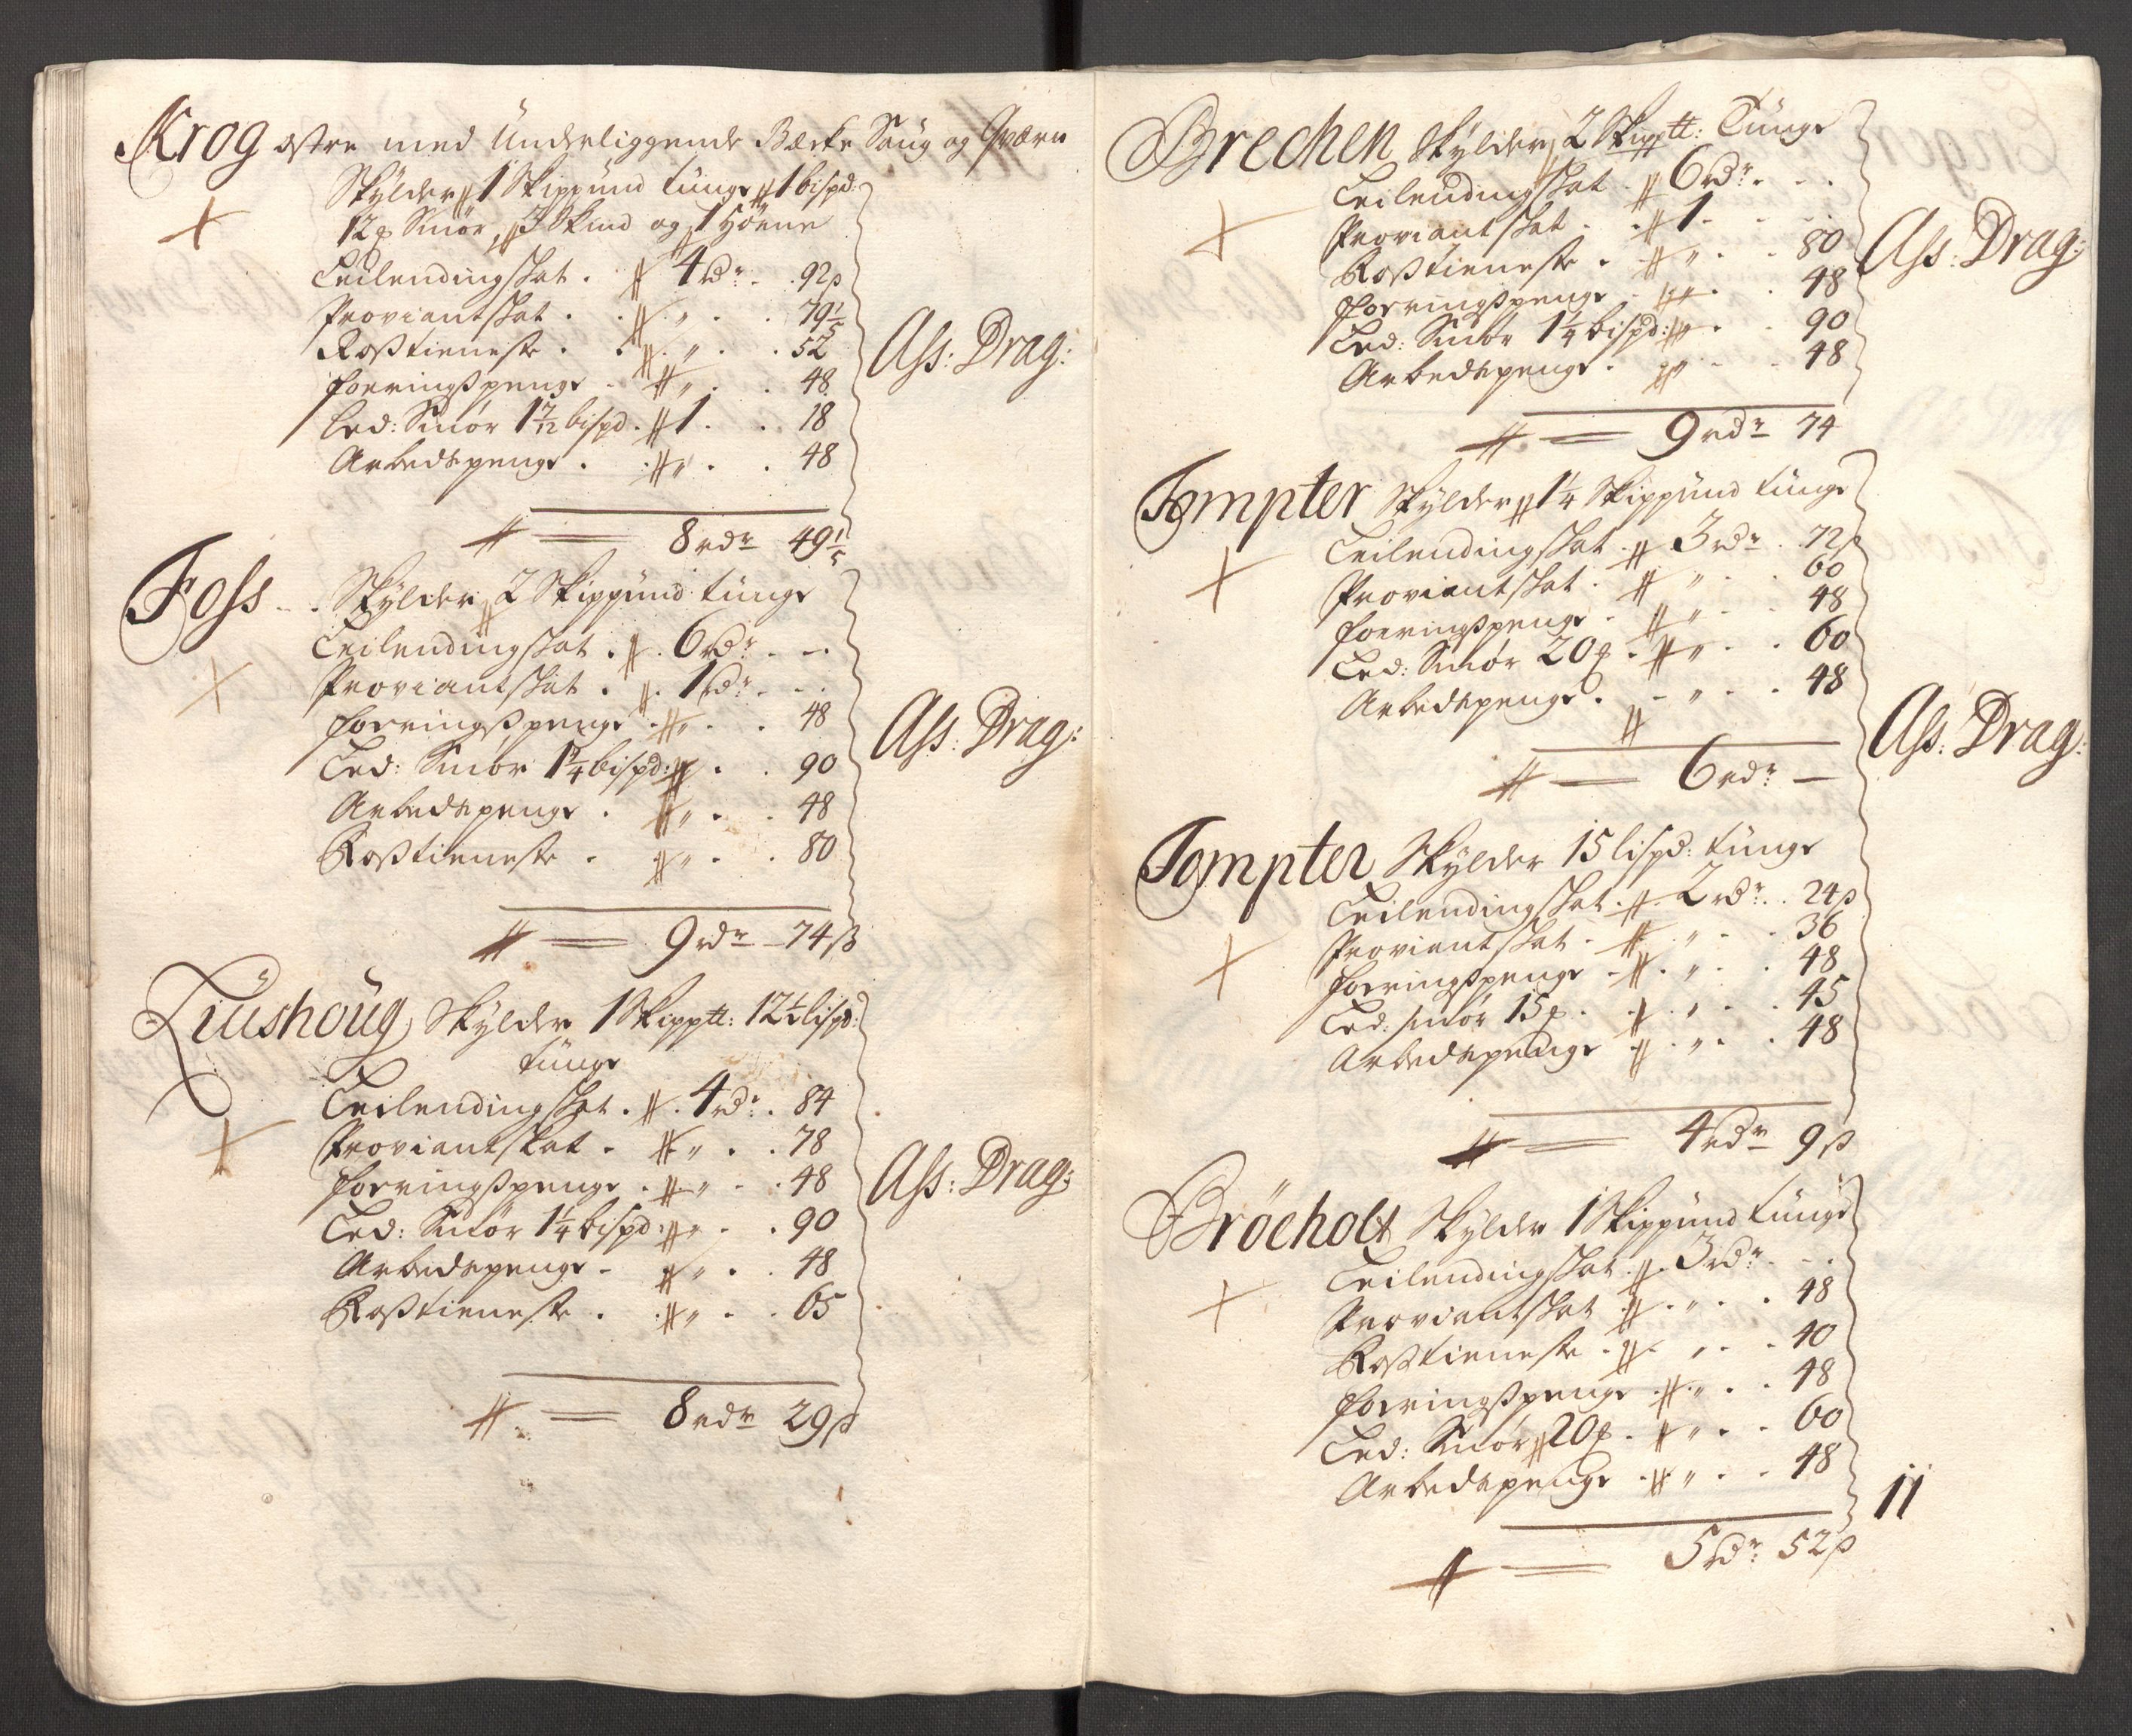 Krog østre med Underliggende Bierke Saug og Qværn
Skylder 1 Skippund tunge 1 bispd:
12 p Smør, 3 Skind og 1 Høene
Leilendingsskat . 4 rdr . 92 ß
Proviantskat . . „ . . 79 1/5
Rosztieneste . . „ . . 52
foeringszpenge . „ . . 48
Led: Smør 1 7/12 bispd . 1 . . 18
Arbedspenge . . „ . . 48
8 rdr 49 1/5
Ass: Drag:
Foss . Skylder 2 Skippund tunge
Leilendingsskat . 6 rdr . - .
Proviantskat . . 1 rdr . - .
foeringszpenge . „ . . 48
Led: Smør 1 1/4 bispd: „ . . 90
Arbedspenge . „ . . 48
Rosztieneste . „ . . 80
9 rdr 74 ß
Ass: Drag:
Liushoug Skylder 1 Skipptt: 12 1/2 lispd:
tunge
Leilendingsskat . 4 rdr . 84
Proviantskat . „ . . 78
foeringszpenge . „ . . 48
Led: Smør 1 1/4 bispd: „ . . 90
Arbedspenge . „ . . 48
Rosztieneste . „ . . 65
8 rdr 29 ß
Ass: Drag:
Brechen Skylder 2 Skipptt: Tunge
Leilendingsskat . 6 rdr . . .
Proviantskat . . 1 . - . .
Rosztieneste . „ . . 80
foeringszpenge . „ . . 48
Led: Smør 1 1/4 bispd: „ . . 90
Arbedspenge . „ . . 48
9 rdr 74
Ass: Drag:
Tompter Skylder 1 1/4 Skippund tunge
Leilendingsskat . 3 rdr . 72 ß
Proviantskat . „ . . 60
foeringszpenge . „ . . 48
Led: Smør 20 p . „ . . 60
Arbedspenge . - „ . . 48
6 rdr —
Ass: Drag:
Tompter Skylder 15 lispd: tunge
Leilendingsskat . 2 rdr . 24 ß
Proviantskat . „ . . 36
foeringszpenge . „ . . 48
Led: smør 15 p . „ . . 45
Arbedspenge . „ . . 48
4 rdr 9 ß
Bröeholt Skylder 1 Skippund tunge
Leilendingsskat . 3 rdr . - .
Proviantskat . „ . . 48
Rosztieneste . „ . . 40
foeringszpenge . „ . . 48
Led: Smør 20 p . „ . . 60
Arbedspenge . „ . . 48
5 rdr 52 ß
11